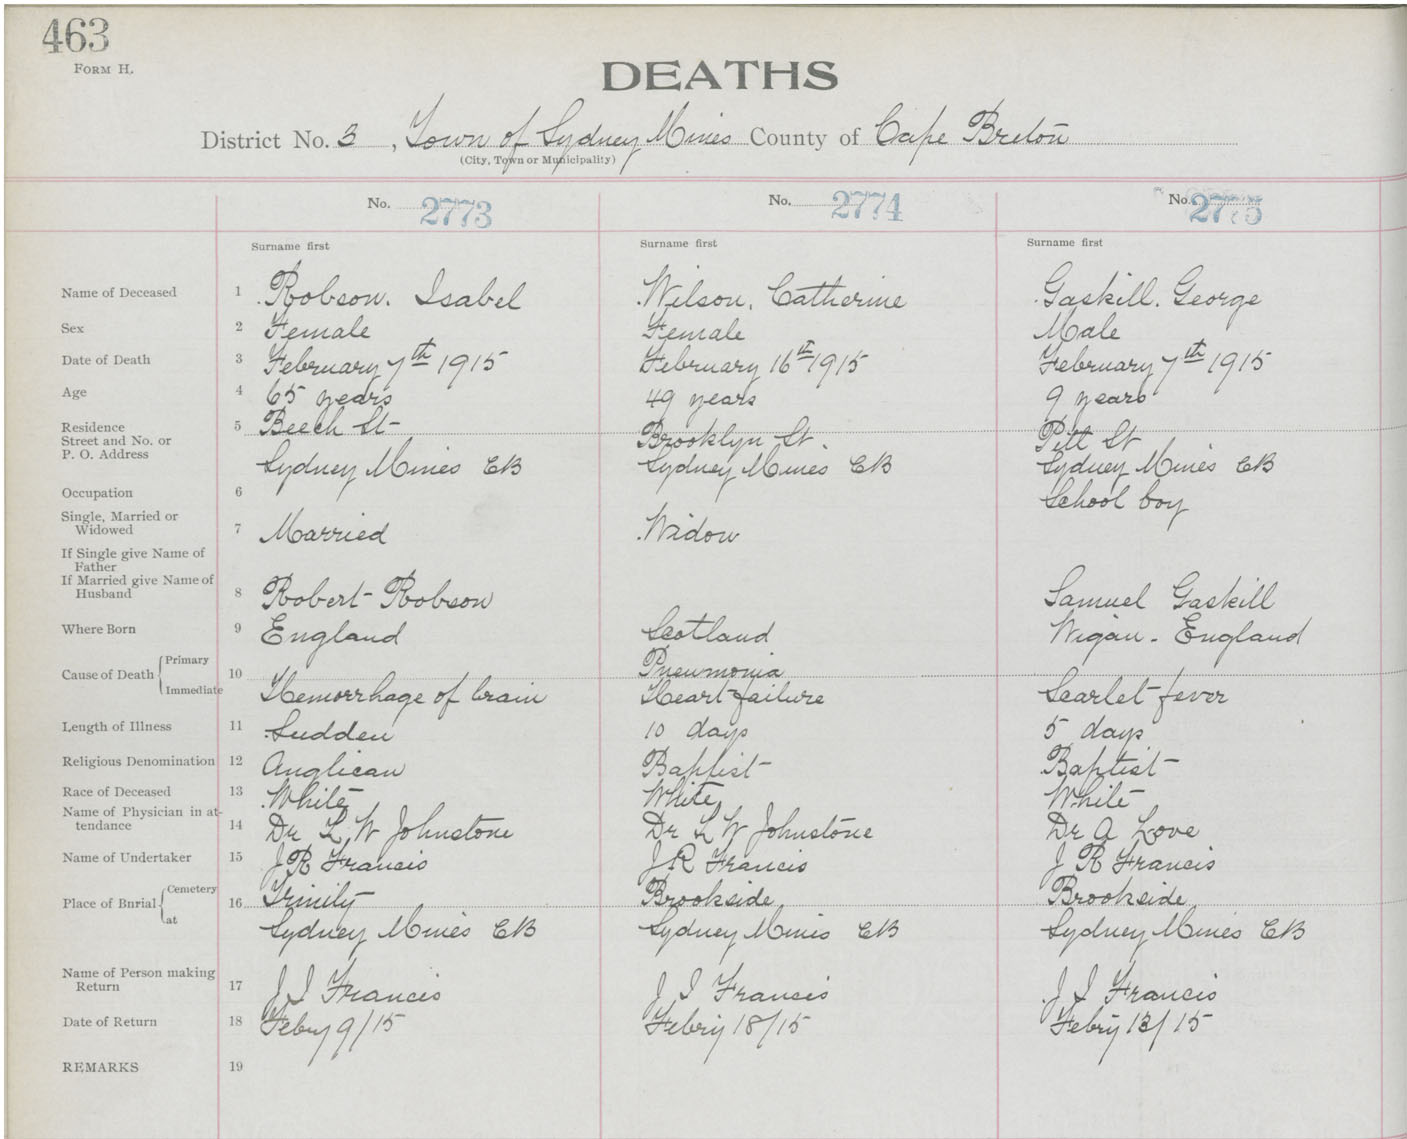 463
FORM H.
DEATHS
District No. 3, Town of Sydney Mines County of Cape Breton
(City, Town or Municipality)
No. 2773 No. 2774 No. 2775
Surname first Surname first Surname first
Name of Deceased 1 Robson. Isabel Wilson, Catherine Gaskill. George
Sex 2 Female Female Male
Date of Death 3 February 7th 1915 February 16th 1915 February 7th 1915
Age 4 65 years 49 years 9 years
Residence 5 Beech St Brooklyn St. Pitt St
Street and No. or
P. O. Address Sydney Mines CB Sydney Mines CB Sydney Mines CB
Occupation 6 School boy
Single, Married or
Widowed 7 Married Widow
If Single give Name of
Father
If Married give Name of
Husband 8 Robert Robson Samuel Gaskill
Where Born 9 England Scotland Wigan - England
Cause of Death Primary 10 Pneumonia
Immediate Hemorrhage of brain Heart failure Scarlet fever
Length of Illness 11 Sudden 10 days 5 days
Religious Denomination 12 Anglican Baptist Baptist
Race of Deceased 13 White White White
Name of Physician in at-
tendance 14 Dr L W Johnstone Dr L W Johnstone Dr A Love
Name of Undertaker 15 J R Francis J R Francis J R Francis
Place of Bnrial Cemetery 16 Trinity Brookside Brookside
at Sydney Mines CB Sydney Mines CB Sydney Mines CB
Name of Person making
Return 17 J I Francis J I Francis J I Francis
Date of Return 18 Febry 9/15 Febry 18/15 Febry 13/15
REMARKS 19